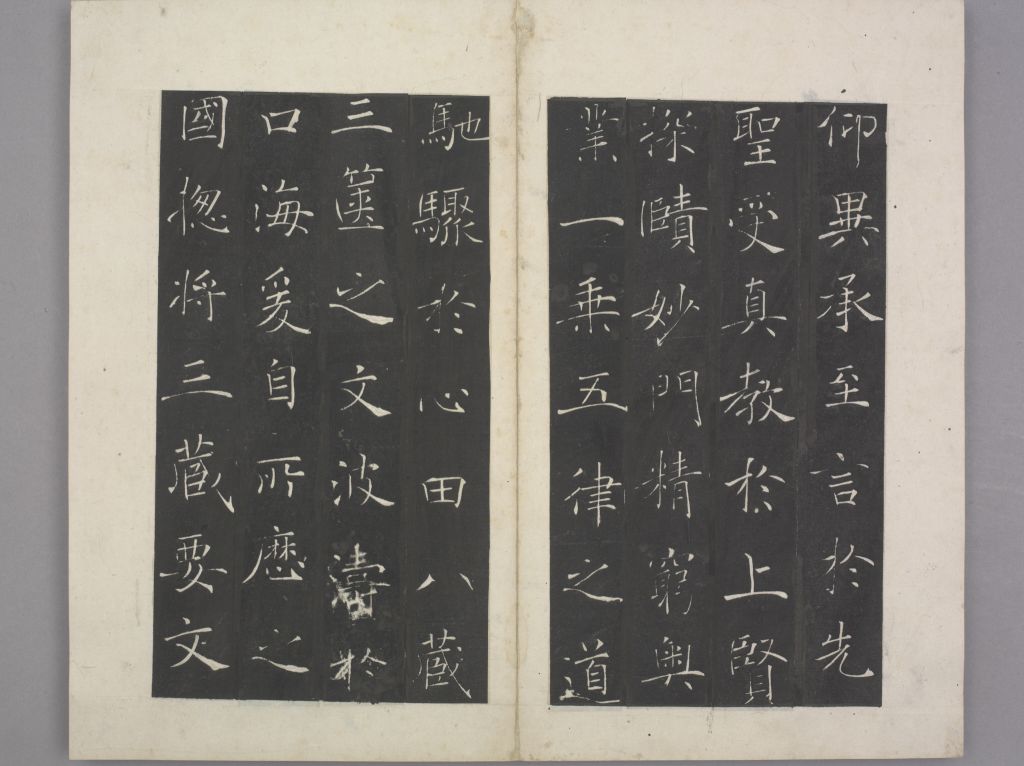 仰異承至言於先
聖受真教於上賢
探賾妙門精窮奥
業一乘五律之道
馳驟於心田八藏
三篋之文波濤於
口海爰自所歷之
國揔将三藏要文